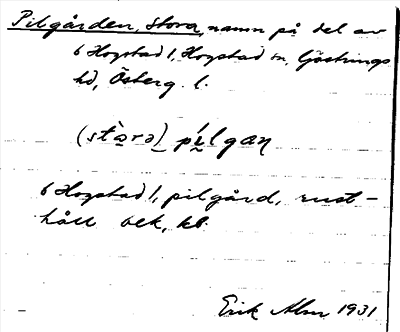 Pilgården, Stora, namn på del av
6 Hogstad 1, Hogstad sn, Göstrings
hd, Österg. l.
(stora) pilgan
6 Hogstad 1, pilgård, rust-
håll och, kl.
Erik Alm 1931